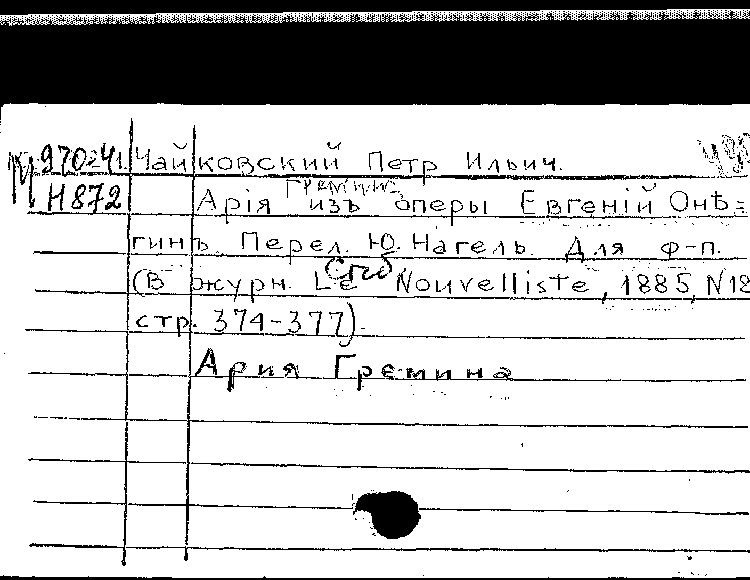 М 970-41 Чайковский Петр Ильич.
Н872 Арія Гремина изъ оперы Евгеній Онѣ=
гинъ. Перел. Ю. Нагель. Для ф-п.
(В журн. Le Nouvelliste, 1885, N18
стр. 374-377).
Ария Гремина